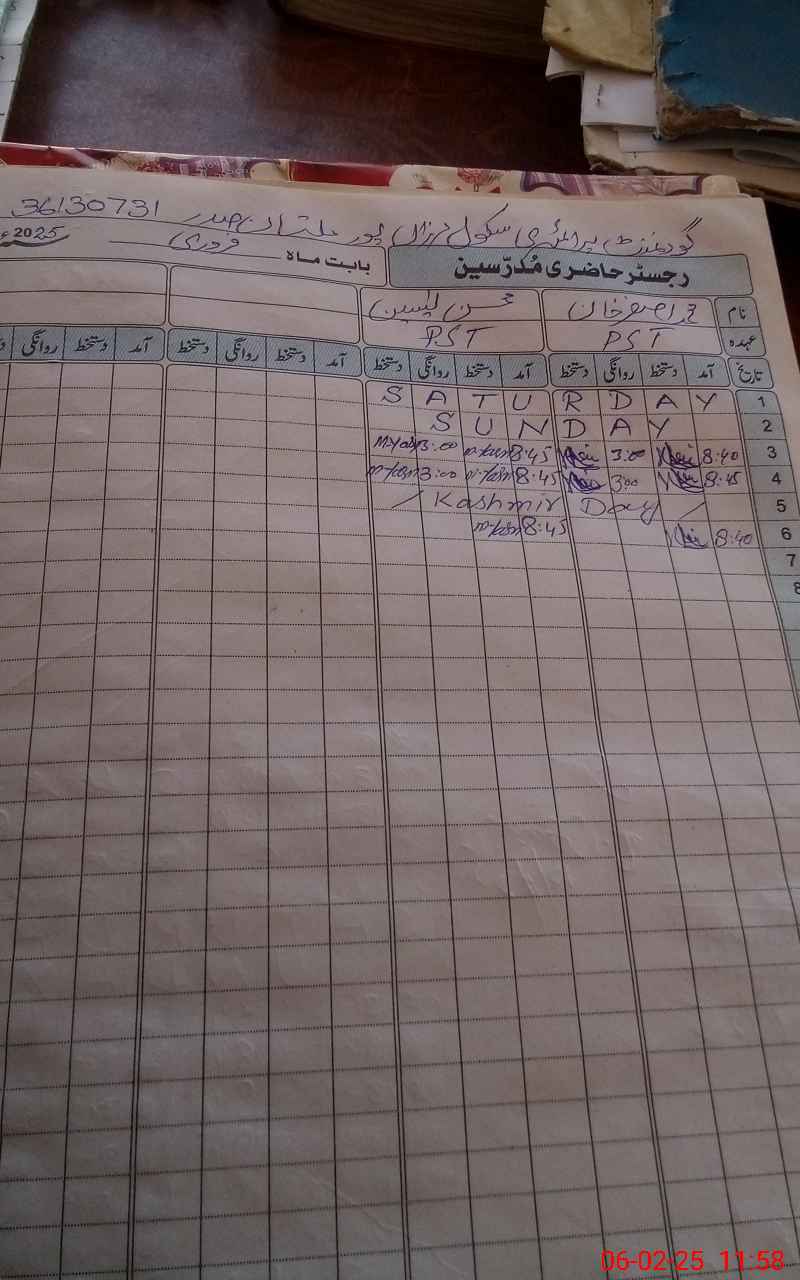 گورنمنٹ پرائمری سکول پور ملتان صدر 36130731
رجسٹر حاضری مُدرّسین بابت ماہ فروری 2025
نام محسن یٰسین
عہدہ PST PST
تاریخ آمد دستخط روانگی دستخط آمد دستخط روانگی دستخط آمد دستخط روانگی دستخط آمد دستخط روانگی
1 SATURDAY
2 SUNDAY
3 8:40 3:00 8:45 3:00
4 8:45 3:00 8:45 3:00
5 / Kashmir Day /
6 8:40 8:45
7
8
06-02-25 11:58